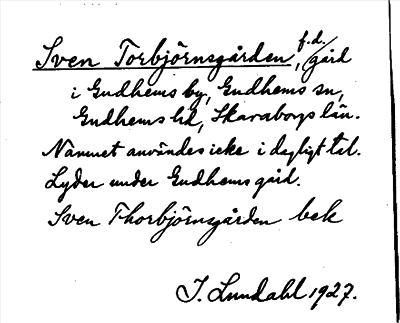 Sven Torbjörnsgården, f.d. gård
i Gudhems by, Gudhems sn,
Gudhems hd, Skaraborgs län.
Namnet användes icke i dagligt tal.
Lyder under Gudhems gård.
Sven Thorbjörnsgården bek
J. Lundahl 1927.